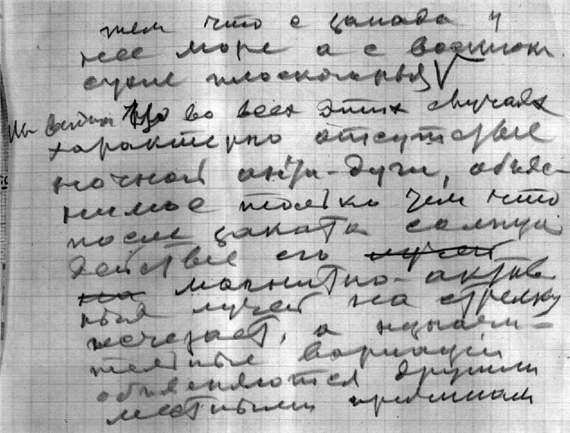 тем что с запада у
нее море а с востока
сухие плоскогорья
Мы видим что во всех этих случаях
характерно отсутствие
ночной анти-дуги, объяс-
нимое только тем что
после заката солнца
действие его лучей
на магнитно-актив
ных лучей на стрелку
исчезает, а
тельные вариации
объясняются другими
местными причинами